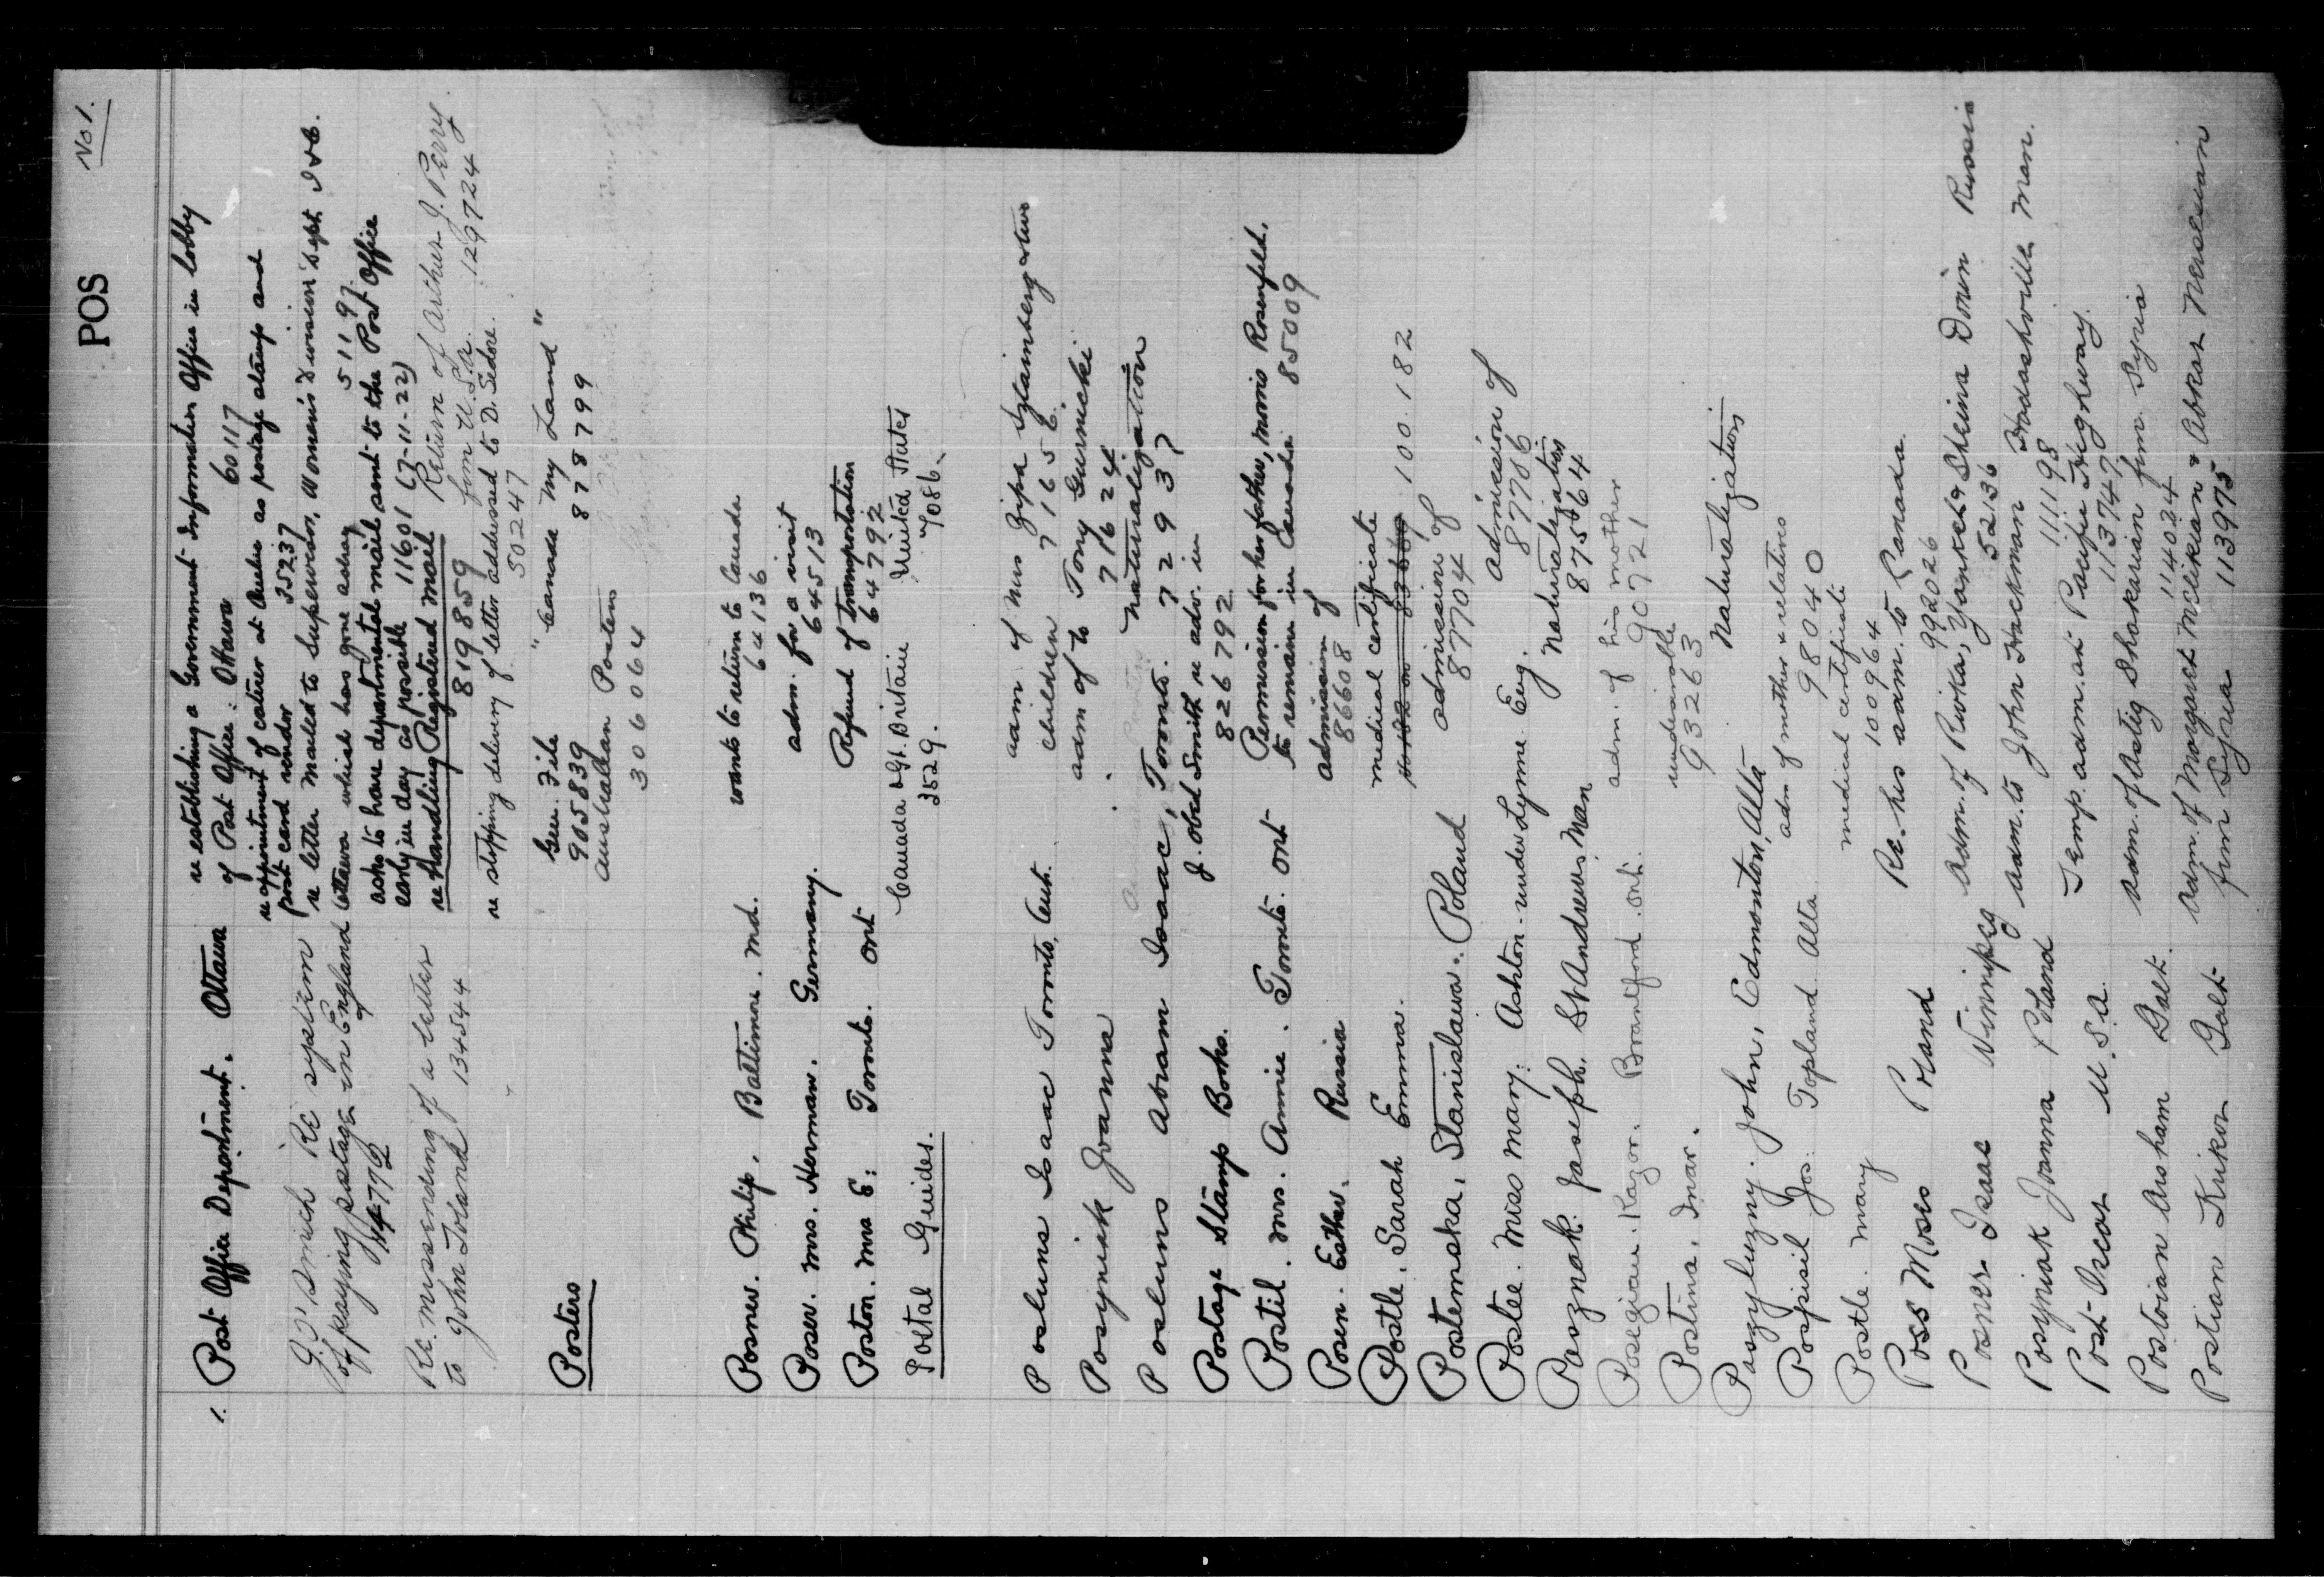 POS No 1.
1. Post Office Department. Ottawa re establishing a Government Information Office in lobby
of Post Office. Ottawa 60117
re appointment of caterer at Quebec as postage stamp and
post card vendor 35237
G.D. Smith Re system re letter mailed to Supervisor, Women's Division Dept I & C.
of paying postage in England Ottawa which has gone astray 51197.
114772 asks to have departmental mail sent to the Post Office
early in day as possible 11601 (7-11-22)
Re. missending of a letter re handling Registered mail Return of Arthur J. Perry.
819859 from U.S.A. 129724
to John Toland 134544 re stopping delivery of letter addressed to D. Sedore.
50247
Posters Gen. File "Canada My Land"
905839 878799
Australian Posters
306064
Posner. Philip. Baltimore. Md. wants to return to Canada
64136
Poser. Mrs. Herman. Germany. adm. for a visit
64513
Poston. Mrs E: Toronto. Ont Refund of transportation
64792
Postal Guides. Canada & Gt. Britain United States
3529. 7086.
Posluns Isaac Toronto, Ont. adm of Mrs Zipa Sztainberg & two
children 71656.
Posyniak Joanna adm of to Tony Gurnicki
71624
Posluns Abram Isaac, Toronto. Naturalization
72937
Postage Stamp Books. J. Obed Smith re adv. in
826792
Postil. Mrs. Annie. Toronto. Ont Permission for her father, Morris Rosenfeld,
to remain in Canada 85009
Posen. Esther. Russia admission of
86608
Postle, Sarah Emma. medical certificate
100.182
Postemska, Stanislawa. Poland admission of
877704
Postee. Miss Mary. Ashton-under-Lyme. Eng. admission of
877706
Pasznak. Joseph. St Andrews Man Naturalization
87564
Posegian. Kazor. Brantford. Ont. adm. of his mother
90721
Postina, Inar. undesirable
93263
Paszyluzny. John, Edmonton, Alta Naturalization
Pospisil Jos. Topland Alta adm of mother & relatives
98040
Postle. Mary medical certificate
100964
Poss Moses Poland Re. his adm. to Canada.
992026
Posner Isaac Winnipeg adm. of Rivka, Yankel & Sheina Dorin Russia
52136
Posyniak Joanna Poland adm. to John Hackman Hadashville Man.
111198
Post Oscar U.S.A. Temp. adm. at Pacific Highway.
113747
Postoian Arsham Galt. adm. of Astig Shakarian from Syria
114024
Postian Kirkor Galt adm. of Margaret Melikian & Abkar Nersesian
from Syria 113975